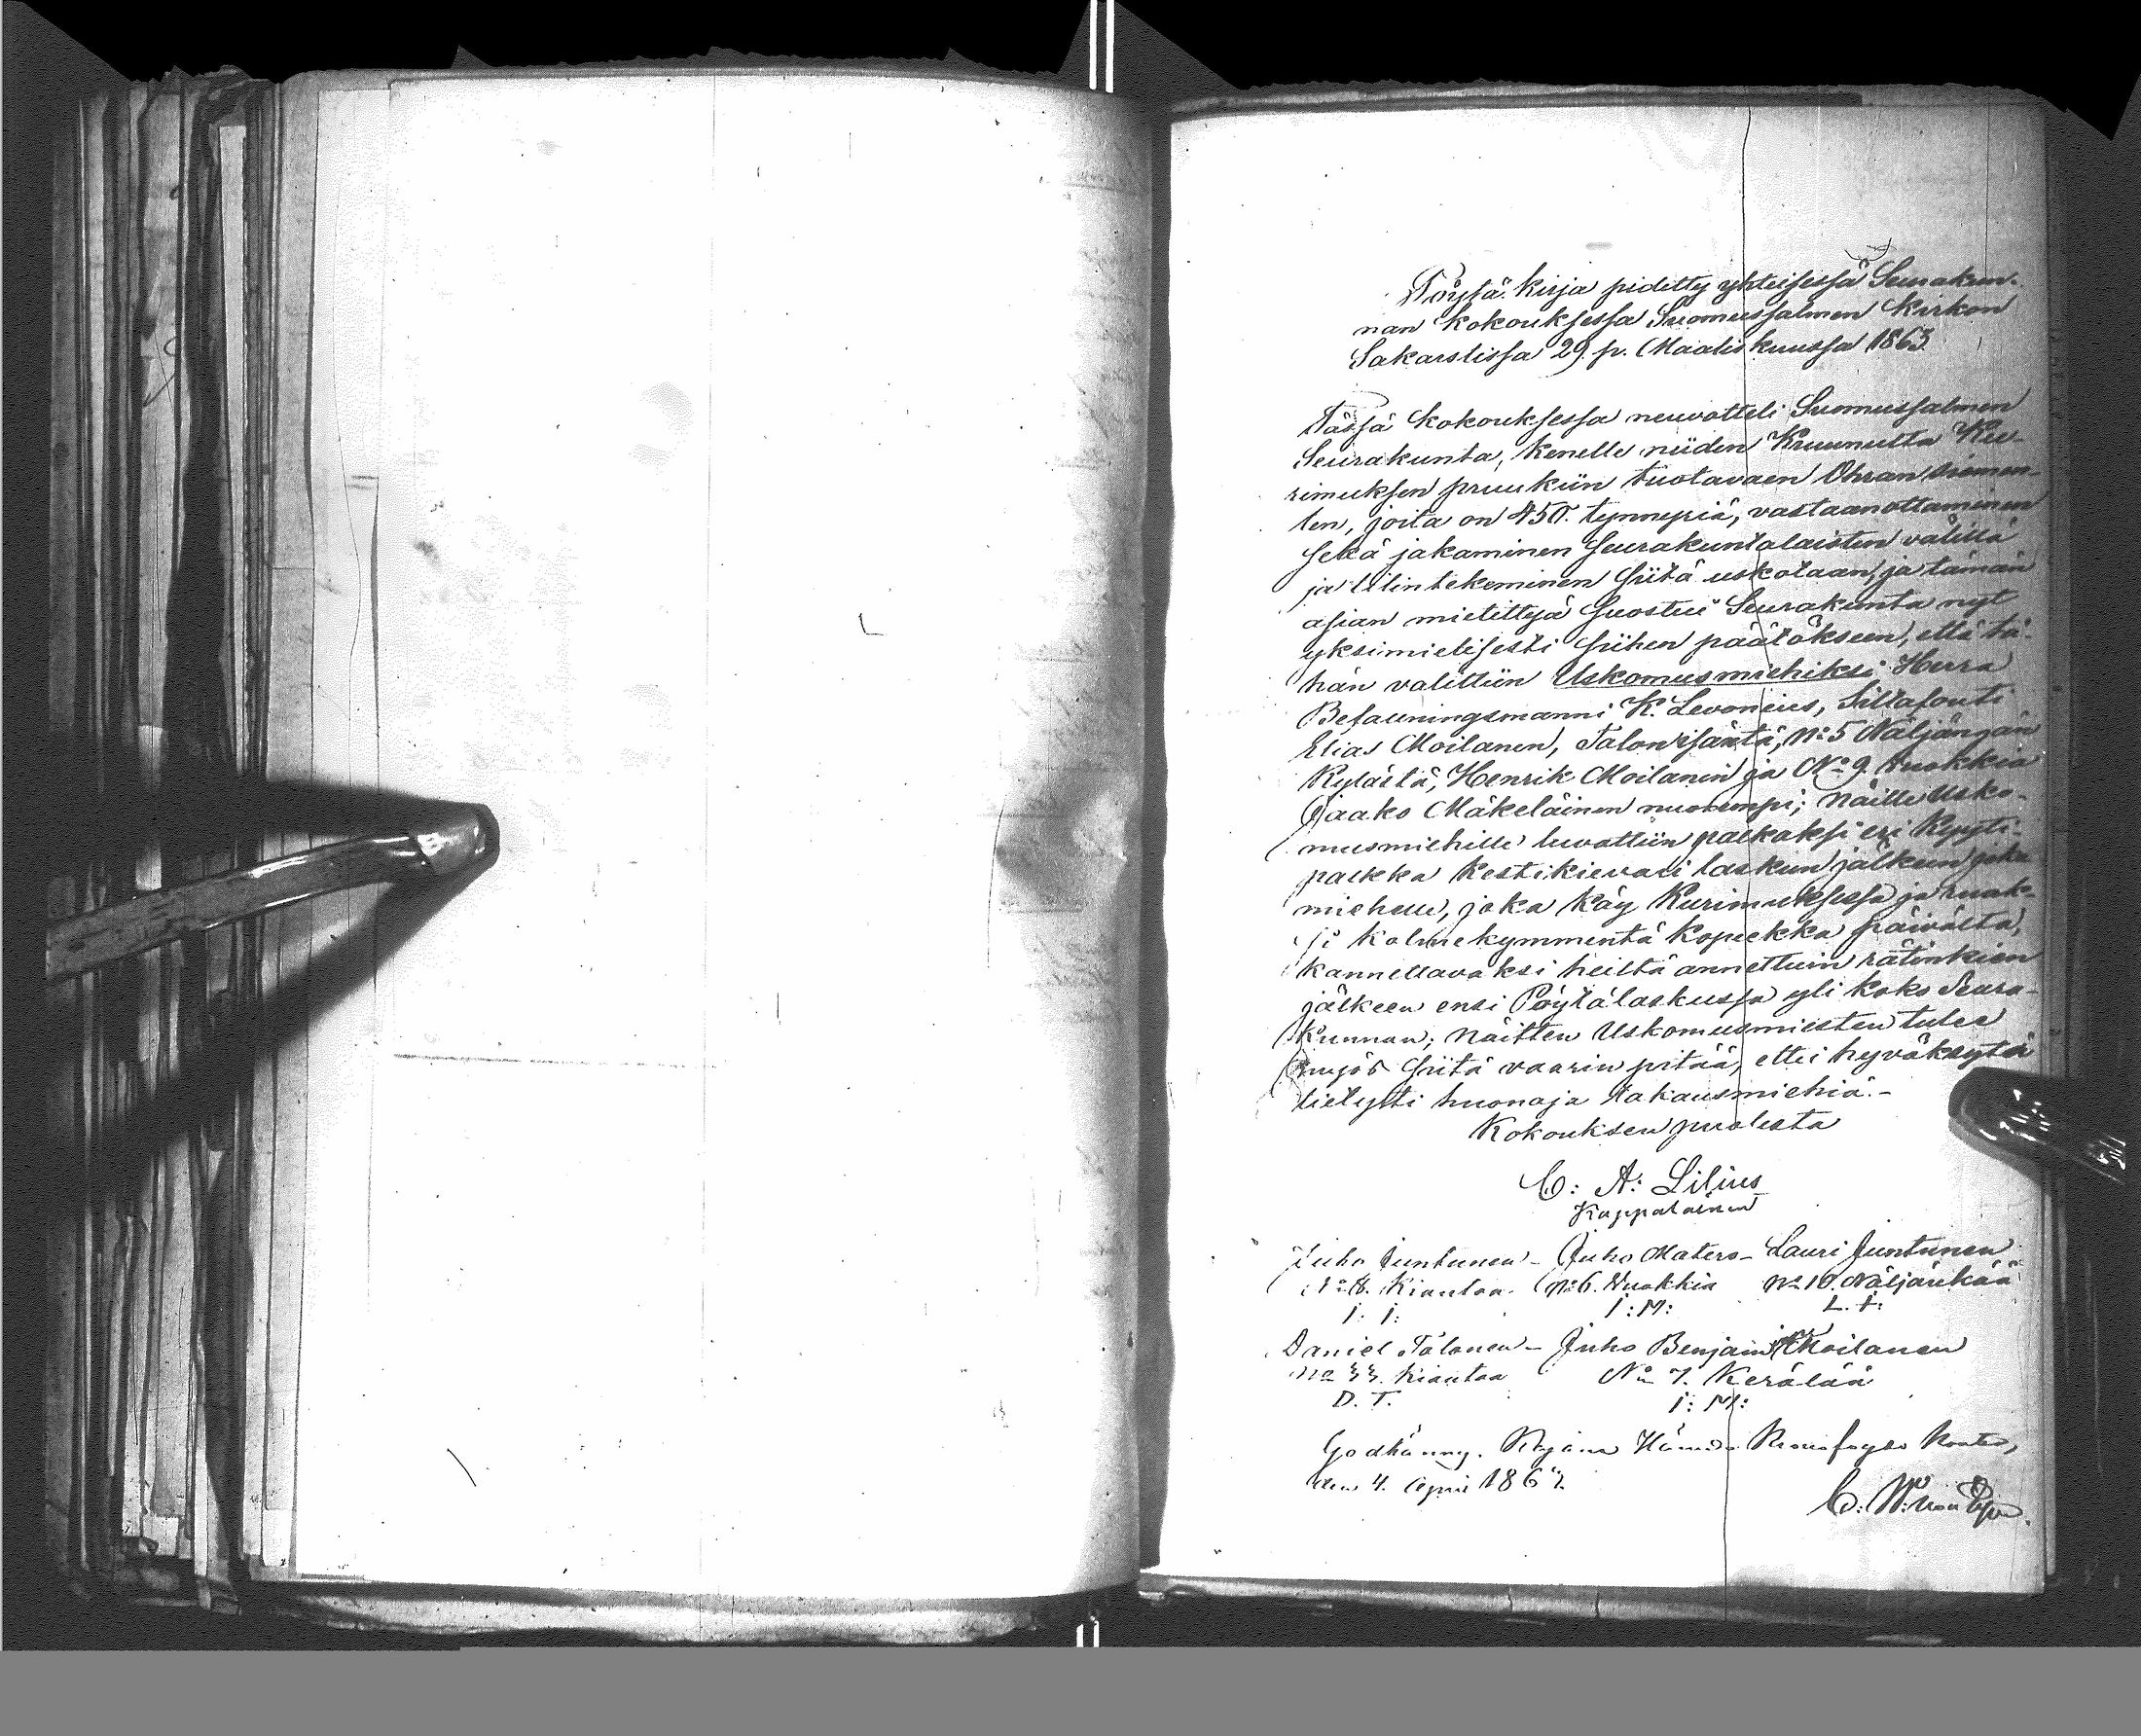 Pöytä Kirja pidetty yhteisessä Seurakun-
nan Kokouksessa Suomussalmen Kirkon
Sakarstissa 29 p. Maaliskuussa 1863
Tässä Kokouksessa neuvotteli Suomussalmen
Seurakunta, Kenelle niiden Kruunulta Ku-
rimuksen pruukiin tuotavaen Ohran siemen-
ten, joita on 450. tynnyriä, vastaanottaminen
sekä jakaminen Seurakuntalaisten välillä
ja tilintekeminen siitä uskotaan, ja tämän
asian mietittyä suostui Seurakunta nyt
yksimielisesti siihen päätökseen, että tä-
hän valittiin Uskomusmiehiksi Herra
Befallningsmanni K. Levonius, Siltafouti
Elias Moilanen, Talon isäntä, No 5 Näljängän
Kylästä, Henrik Moilanen ja No 9 Vuokkia
Jaako Mäkeläinen nuorempi; Näille Usko-
musmiehille luvattiin palkaksi eri Kyyti-
palkka Kestikievari laskun jälkeen joka
miehelle, joka käy Kurimuksessa ja ruak-
si Kolmekymmentä Kopeekka päivältä,
kannettavaksi heiltä annettuin rätinkien
jälkeen ensi Pöytälaskussa yli koko Seura-
Kunnan; Näitten Uskomusmiesten tulee
myös siitä vaarin pitää, ettei hyväksytä
tietysti huonoja takausmiehiä.-
Kokouksen puolesta
C: A: Lilius
Kappalainen
Juho Juntunen - Juho Matero - Lauri Juntunen
No 8. Kiantaa. No 6. Vuokkia No 10. Näljänkää
J. J: J: M: L. J:
Daniel Tolonen - Juho Benjamin Moilanen
No 33. Kiantaa No 7. Kerälää
D. T. J: M:
Godkännes. Kajana Härads Kronofogde Kontor,
den 4. April 1863.
C: W: von